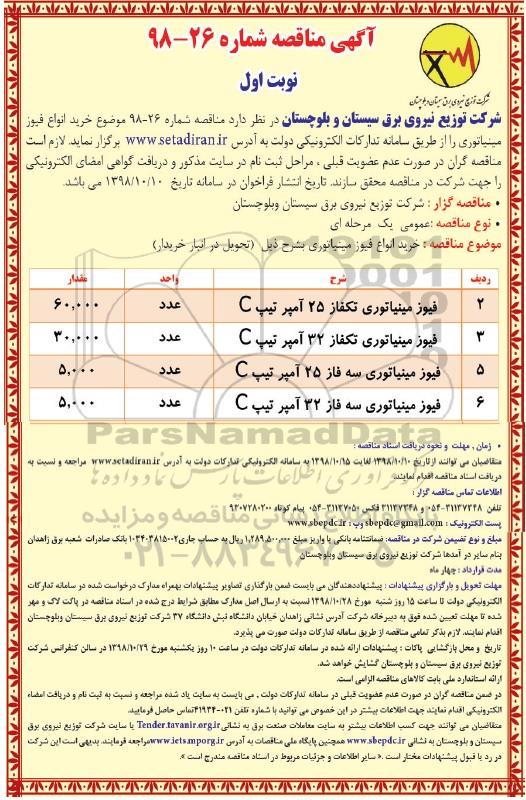 آگهی مناقصه شماره ۲۶-۹۸
نوبت اول
شرکت توزیع نیروی برق سیستان و بلوچستان
شرکت توزیع نیروی برق سیستان و بلوچستان در نظر دارد مناقصه شماره ۲۶-۹۸ موضوع خرید انواع فیوز
مینیاتوری را از طریق سامانه تدارکات الکترونیکی دولت به آدرس www.setadiran.ir برگزار نماید. لازم است
مناقصه گران در صورت عدم عضویت قبلی ، مراحل ثبت نام در سایت مذکور و دریافت گواهی امضای الکترونیکی
را جهت شرکت در مناقصه محقق سازند. تاریخ انتشار فراخوان در سامانه تاریخ ۱۳۹۸/۱۰/۱۰ می باشد.
• مناقصه گزار : شرکت توزیع نیروی برق سیستان وبلوچستان
• نوع مناقصه :عمومی یک مرحله ای
موضوع مناقصه : خرید انواع فیوز مینیاتوری بشرح ذیل (تحویل در انبار خریدار)
ردیف شرح واحد مقدار
۲ فیوز مینیاتوری تکفاز ۲۵ آمپر تیپ C عدد ۶۰,۰۰۰
۳ فیوز مینیاتوری تکفاز ۳۲ آمپر تیپ C عدد ۳۰,۰۰۰
۵ فیوز مینیاتوری سه فاز ۲۵ آمپر تیپ C عدد ۵,۰۰۰
۶ فیوز مینیاتوری سه فاز ۳۲ آمپر تیپ C عدد ۵,۰۰۰
ParsNamadData
• زمان , مهلت و نحوه دریافت اسناد مناقصه :
متقاضیان می توانند از تاریخ ۱۳۹۸/۱۰/۱۰ لغایت ۱۳۹۸/۱۰/۱۵ به سامانه الکترونیکی تدارکات دولت به آدرس www.setadiran.ir مراجعه و نسبت به
دریافت اسناد مناقصه اقدام نمایند.
اطلاعات تماس مناقصه گزار :
تلفن ۳۱۱۳۷۲۴۸-۰۵۴ و ۳۱۱۳۷۳۴۸ فکس ۳۱۱۳۷۰۵۰-۰۵۴ پیام کوتاه ۹۲۰۷۲۸۰۲۰۰
پست الکترونیک : sbepdc@gmail.com وب : www.sbepdc.ir
مبلغ و نوع تضمین شرکت در مناقصه: ضمانتنامه بانکی یا واریز مبلغ ۱,۲۸۹,۵۰۰,۰۰۰ ریال به حساب جاری ۰۱۰۳۴۰۳۸۱۵۰۰۲ بانک صادرات شعبه برق زاهدان
بنام سایر در آمدها شرکت توزیع نیروی برق سیستان وبلوچستان
مدت قرارداد : چهار ماه
مهلت تحویل و بارگزاری پیشنهادات : پیشنهاددهندگان می بایست ضمن بارگذاری تصاویر پیشنهادات بهمراه مدارک درخواست شده در سامانه تدارکات
الکترونیکی دولت تا ساعت ۱۵ روز شنبه مورخ ۱۳۹۸/۱۰/۲۸ نسبت به ارسال اصل مدارک مطابق شرایط درج شده در اسناد مناقصه در پاکت لاک و مهر
شده تا مهلت تعیین شده فوق به دبیرخانه شرکت آدرس نشانی زاهدان خیابان دانشگاه نبش دانشگاه ۳۷ شرکت توزیع نیروی برق سیستان وبلوچستان
اقدام نمایند. لازم بذکر تمامی مناقصه از طریق سامانه تدارکات دولت صورت می پذیرد.
تاریخ و محل بازگشایی پاکات : پیشنهادات ارائه شده در سامانه تدارکات دولت در ساعت ۱۰ روز یکشنبه مورخ ۱۳۹۸/۱۰/۲۹ در سالن کنفرانس شرکت
توزیع نیروی برق سیستان و بلوچستان گشایش خواهد شد.
ارائه استاندارد ملی بابت کالاهای مناقصه الزامی است.
در ضمن مناقصه گران در صورت عدم عضویت قبلی در سامانه تدارکات دولت , می بایست به سایت یاد شده مراجعه و نسبت به ثبت نام و دریافت امضاء
الکترونیکی اقدام نمایند جهت اطلاعات بیشتر در این خصوص می توانید با شماره تلفن ۰۲۱-۴۱۹۳۴تماس حاصل فرمایید.
متقاضیان می توانند جهت کسب اطلاعات بیشتر به سایت معاملات صنعت برق به نشانی Tender.tavanir.org.ir یا سایت شرکت توزیع نیروی برق
سیستان و بلوچستان به نشانی www.sbepdc.ir همچنین پایگاه ملی مناقصات به آدرس www.iets.mporg.ir مراجعه فرمایند. بدیهی است این شرکت
در رد یا قبول پیشنهادات مختار است .« سایر اطلاعات و جزئیات مربوط در اسناد مناقصه مندرج است ».